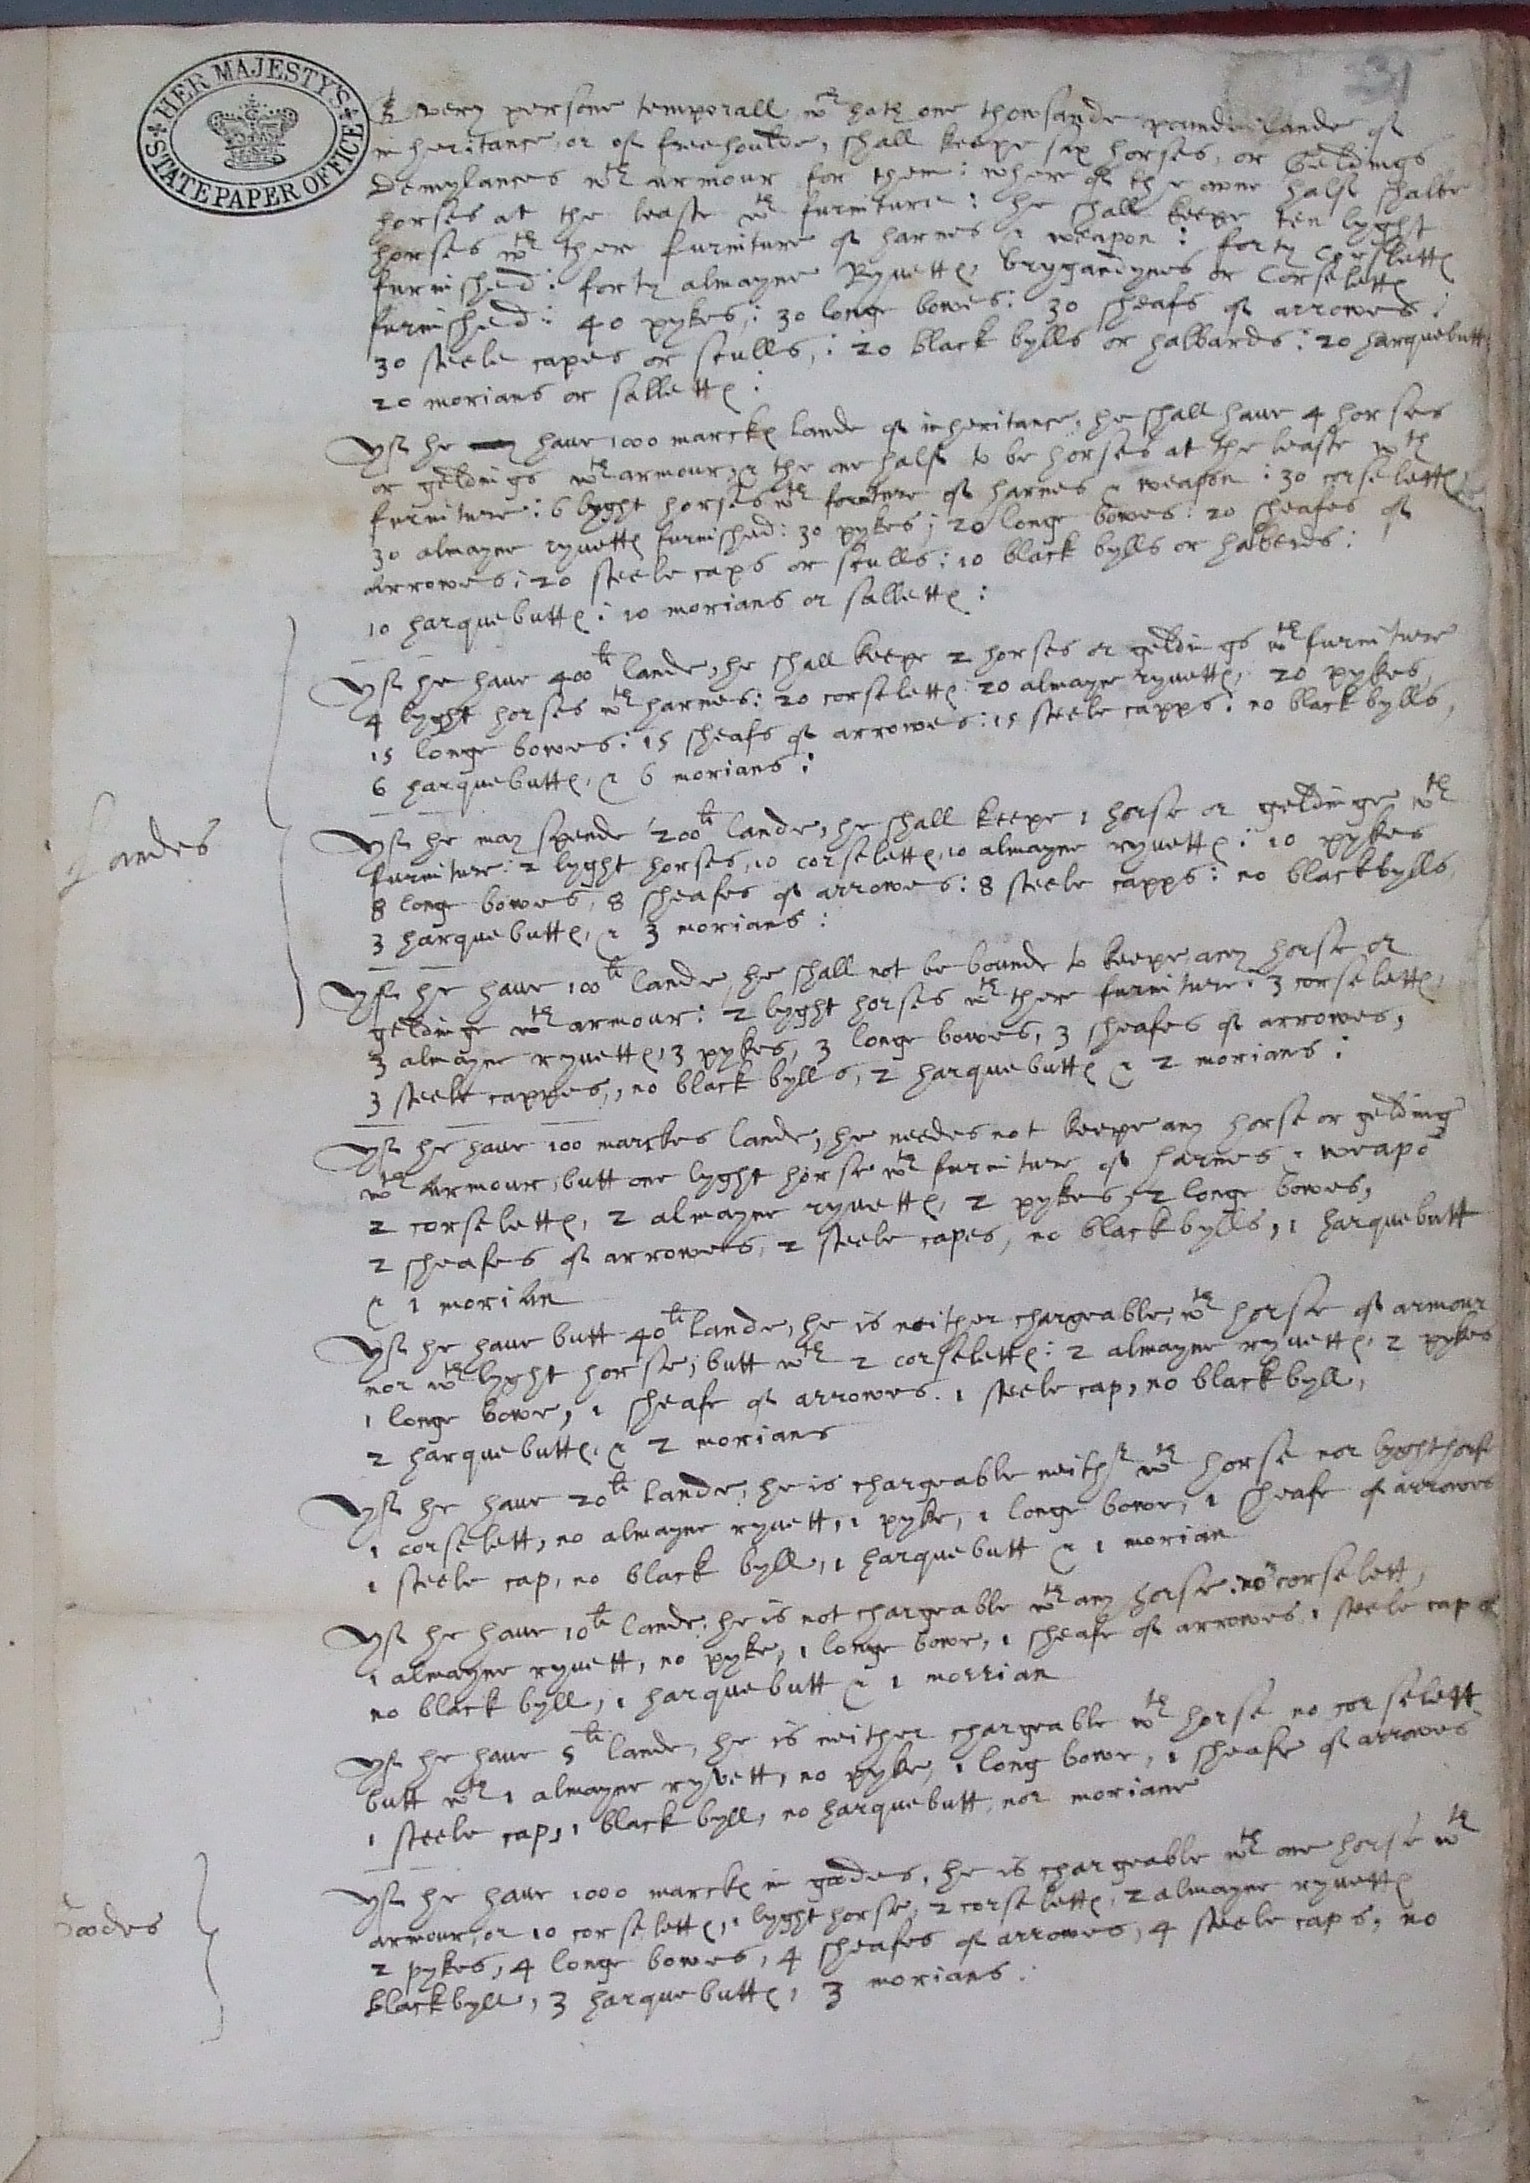 HER MAJESTY'S STATE PAPER OFFICE
31
Every persone temporall wth hath one thowsande pounde lande of
inheritance, or of freehoulde, shall keepe six horses, or Geldings
Demylances wth armour for them: where of the owne half shalbe
horses at the leaste wth furniture: he shall keepe ten lyght
horses wth ther furniture of harnes & weapon: forty corslettes
furnished: forty almayne Ryvettes, brygandynes or Corselettes
furnished: 40 pykes,: 30 longe bowes: 30 sheafs of arrowes:
30 steele capes or sculls,: 20 black bylls or halbards: 20 harquebutts
20 morians or sallettes:
Yf he have 1000 marckes lande of inheritance, he shall have 4 horses
or geldings wth armour, & the one half to be horses at the leaste wth
furniture: 6 lyght horses wth furniture of harnes & weapon: 30 corselettes
30 almayne ryvettes furnished: 30 pykes; 20 longe bowes: 20 sheafes of
arrowes: 20 steele caps or sculls: 10 black bylls or halberds:
10 harquebuttes: 10 morians or sallettes:
Yf he have 400li lande, he shall keepe 2 horses or geldings wth furniture
4 lyght horses wth harnes: 20 corselettes: 20 almayne ryvettes, 20 pykes,
15 longe bowes: 15 sheafs of arrowes: 15 steele capps: no black bylls,
6 harquebuttes, & 6 morians:
Landes
Yf he may spende 200li lande, he shall keepe 1 horse or geldinge wth
furniture: 2 lyght horses, 10 corselettes, 10 almayne ryvettes: 10 pykes
8 long bowes, 8 sheafes of arrowes: 8 steele capps: no blackbylls,
3 harquebuttes, & 3 morians:
Yf he have 100li lande, he shall not be bounde to keepe any horse or
geldinge wth armour: 2 lyght horses wth there furniture: 3 corselettes,
3 almayne ryvettes, 3 pykes, 3 longe bowes, 3 sheafes of arrowes,
3 steele cappes,, no black bylls, 2 harquebuttes & 2 morians:
Yf he have 100 marckes lande, he needes not keepe any horse or gelding
wth armour, butt one lyght horse wth furniture of harnes & weapō
2 corselettes, 2 almayne ryvettes, 2 pykes, 2 longe bowes,
2 sheafes of arrowes, 2 steele capes, no blackbylls, 1 harquebutt
& 1 morian
Yf he have butt 40li lande, he is neither chargeable, wth horse of armour
nor wth lyght horse, butt wth 2 corselettes: 2 almayne ryvettes, 2 pykes
1 longe bowe, 1 sheafe of arrowes. 1 steele cap, no blackbyll,
2 harquebuttes, & 2 morians
Yf he have 20li lande, he is chargeable neithr wth horse nor lyght horse
1 corselett, no almayne ryvett, 1 pyke, 1 longe bowe, 1 sheafe of arrowes
1 steele cap, no black byll, 1 harquebutt & 1 morian
Yf he have 10li lande, he is not chargeable wth any horse, no corselett,
1 almayne ryvett, no pyke, 1 longe bowe, 1 sheafe of arrowes, 1 steele cap
no black byll, 1 harquebutt & 1 morrian
Yf he have 5li lande, he is neither chargeable wth horse no corselett
butt wth 1 almayne ryvett, no pyke, 1 long bowe, 1 sheafe of arrowes
1 steele cap, 1 black byll, no harquebutt, nor moriane
Goodes
Yf he have 1000 marckes in goodes, he is chargeable wth one horse wth
armour, or 10 corselettes, 1 lyght horse, 2 corselettes, 2 almayne ryvettes
2 pykes, 4 longe bowes, 4 sheafes of arrowes, 4 steele caps, no
blackbyll, 3 harquebuttes, 3 morians: